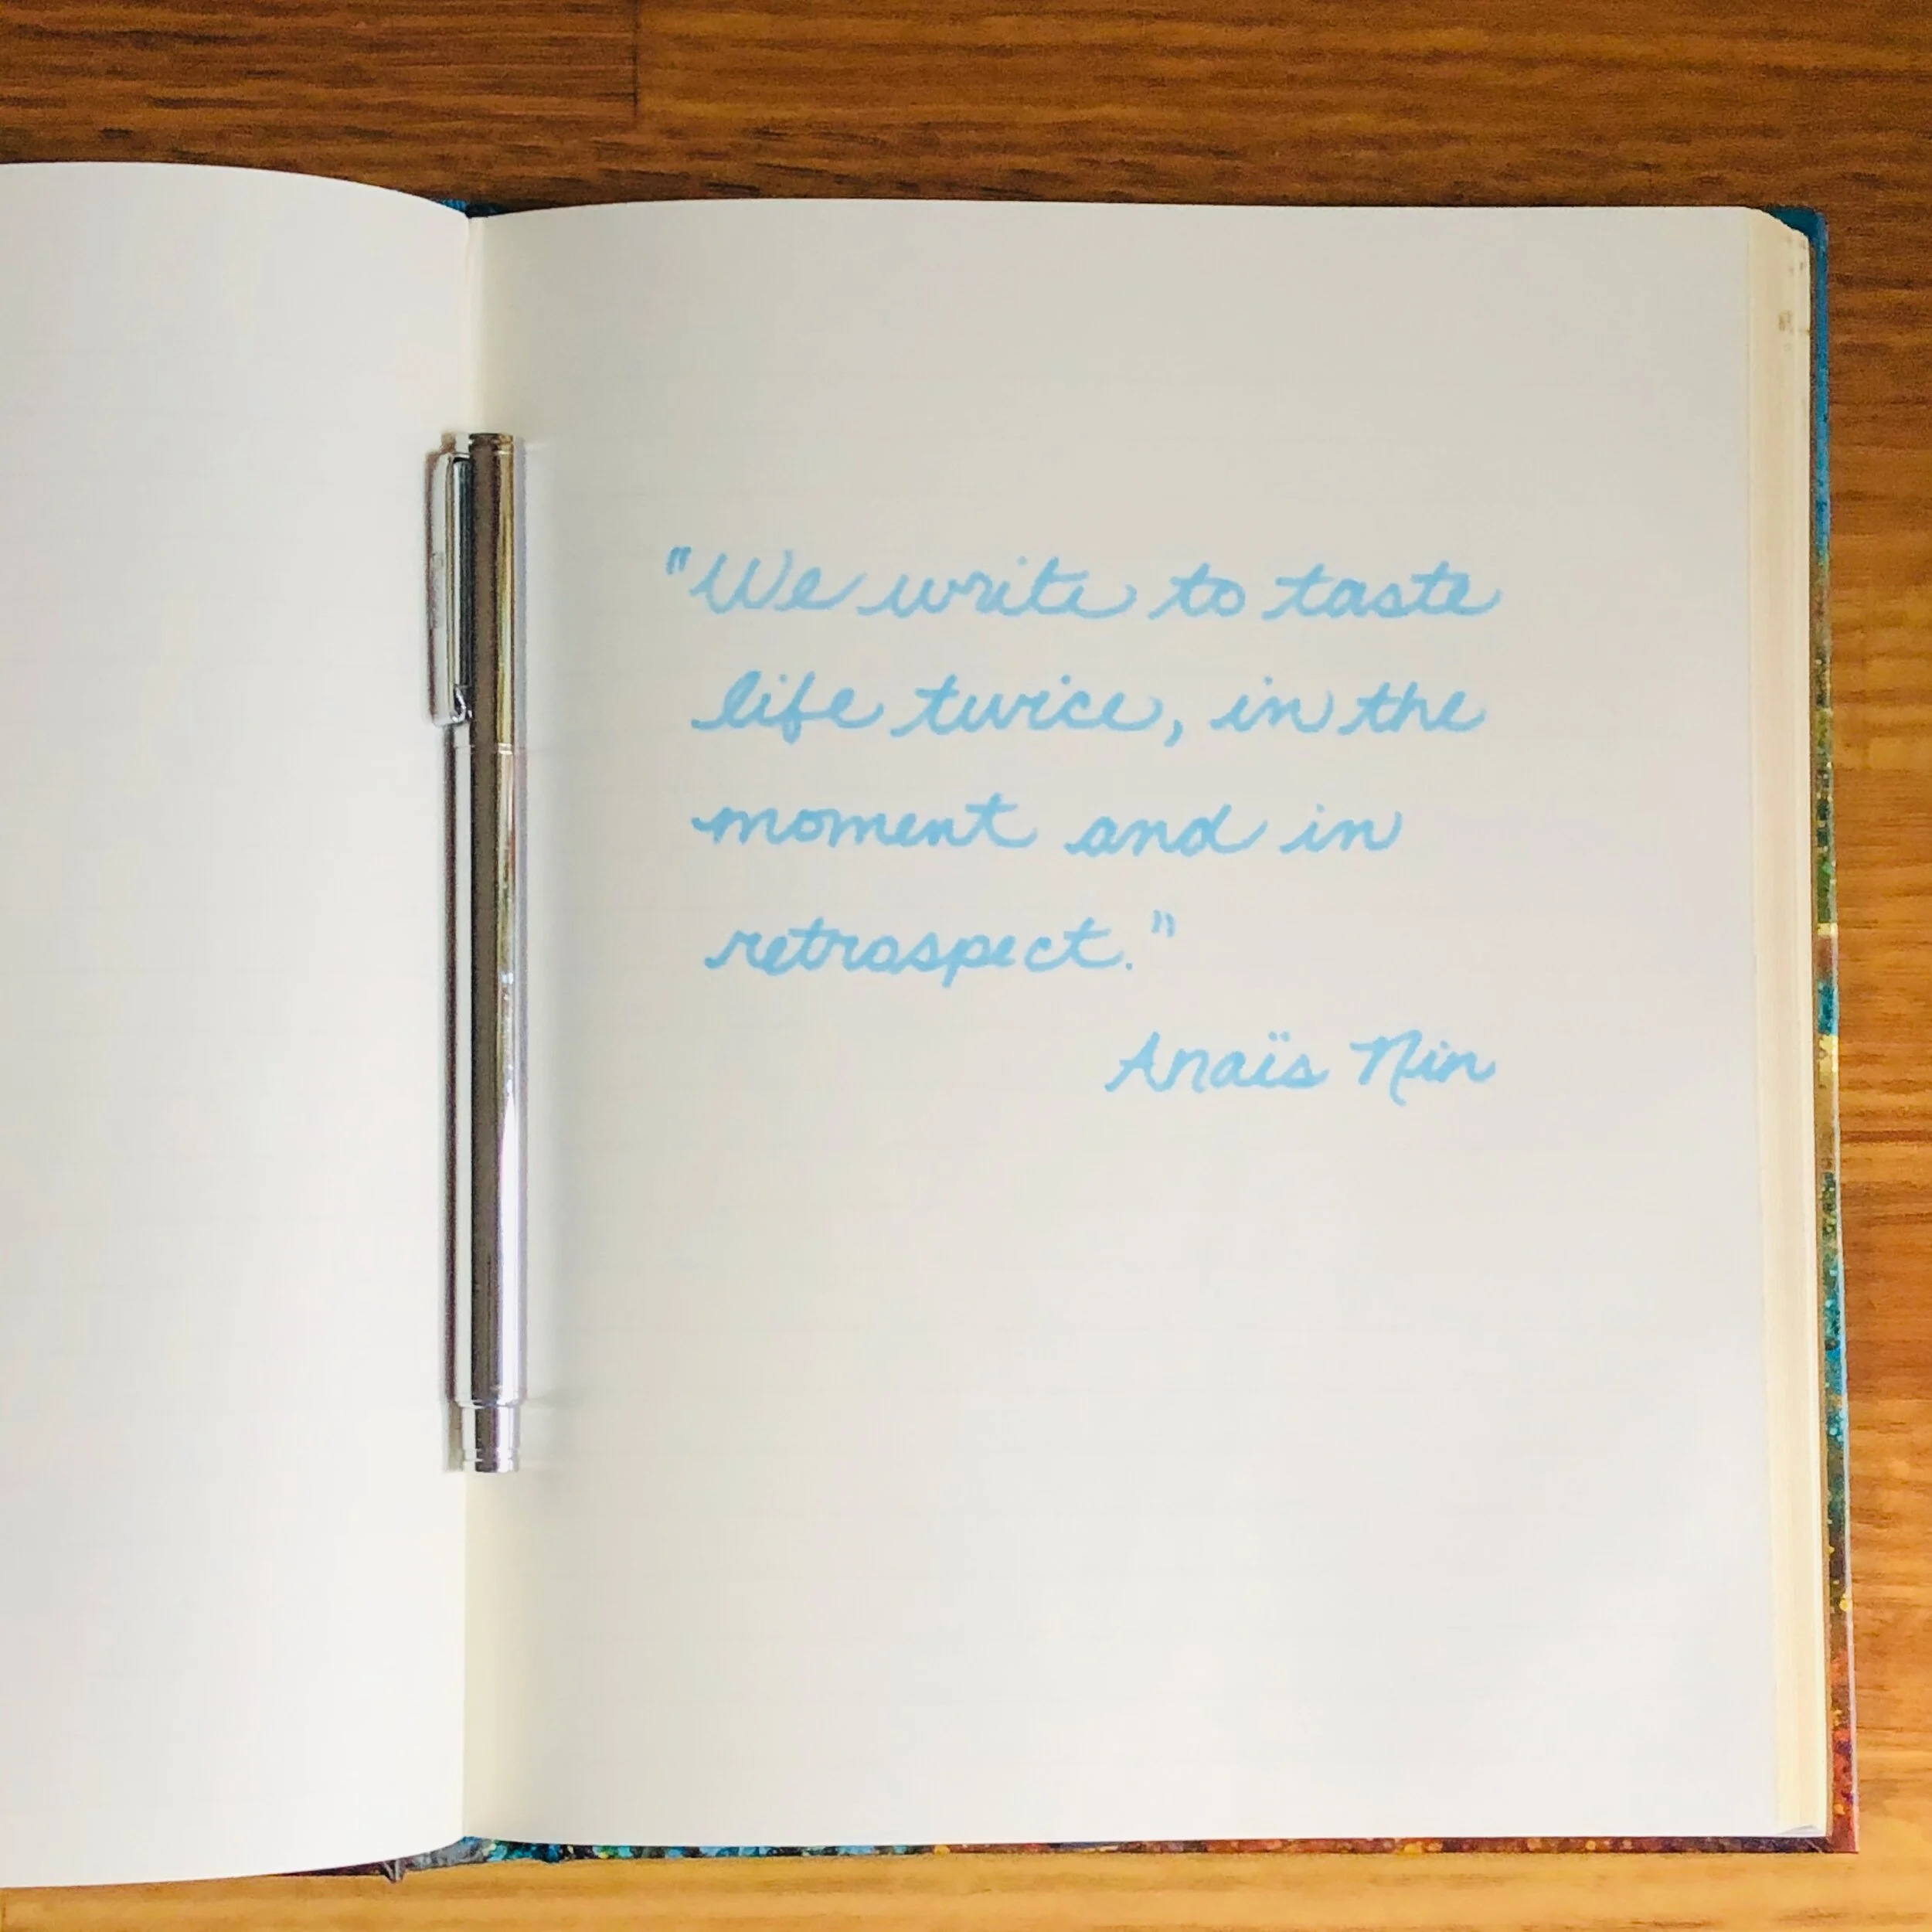 "We write to taste
life twice, in the
moment and in
retrospect."
Anaïs Nin